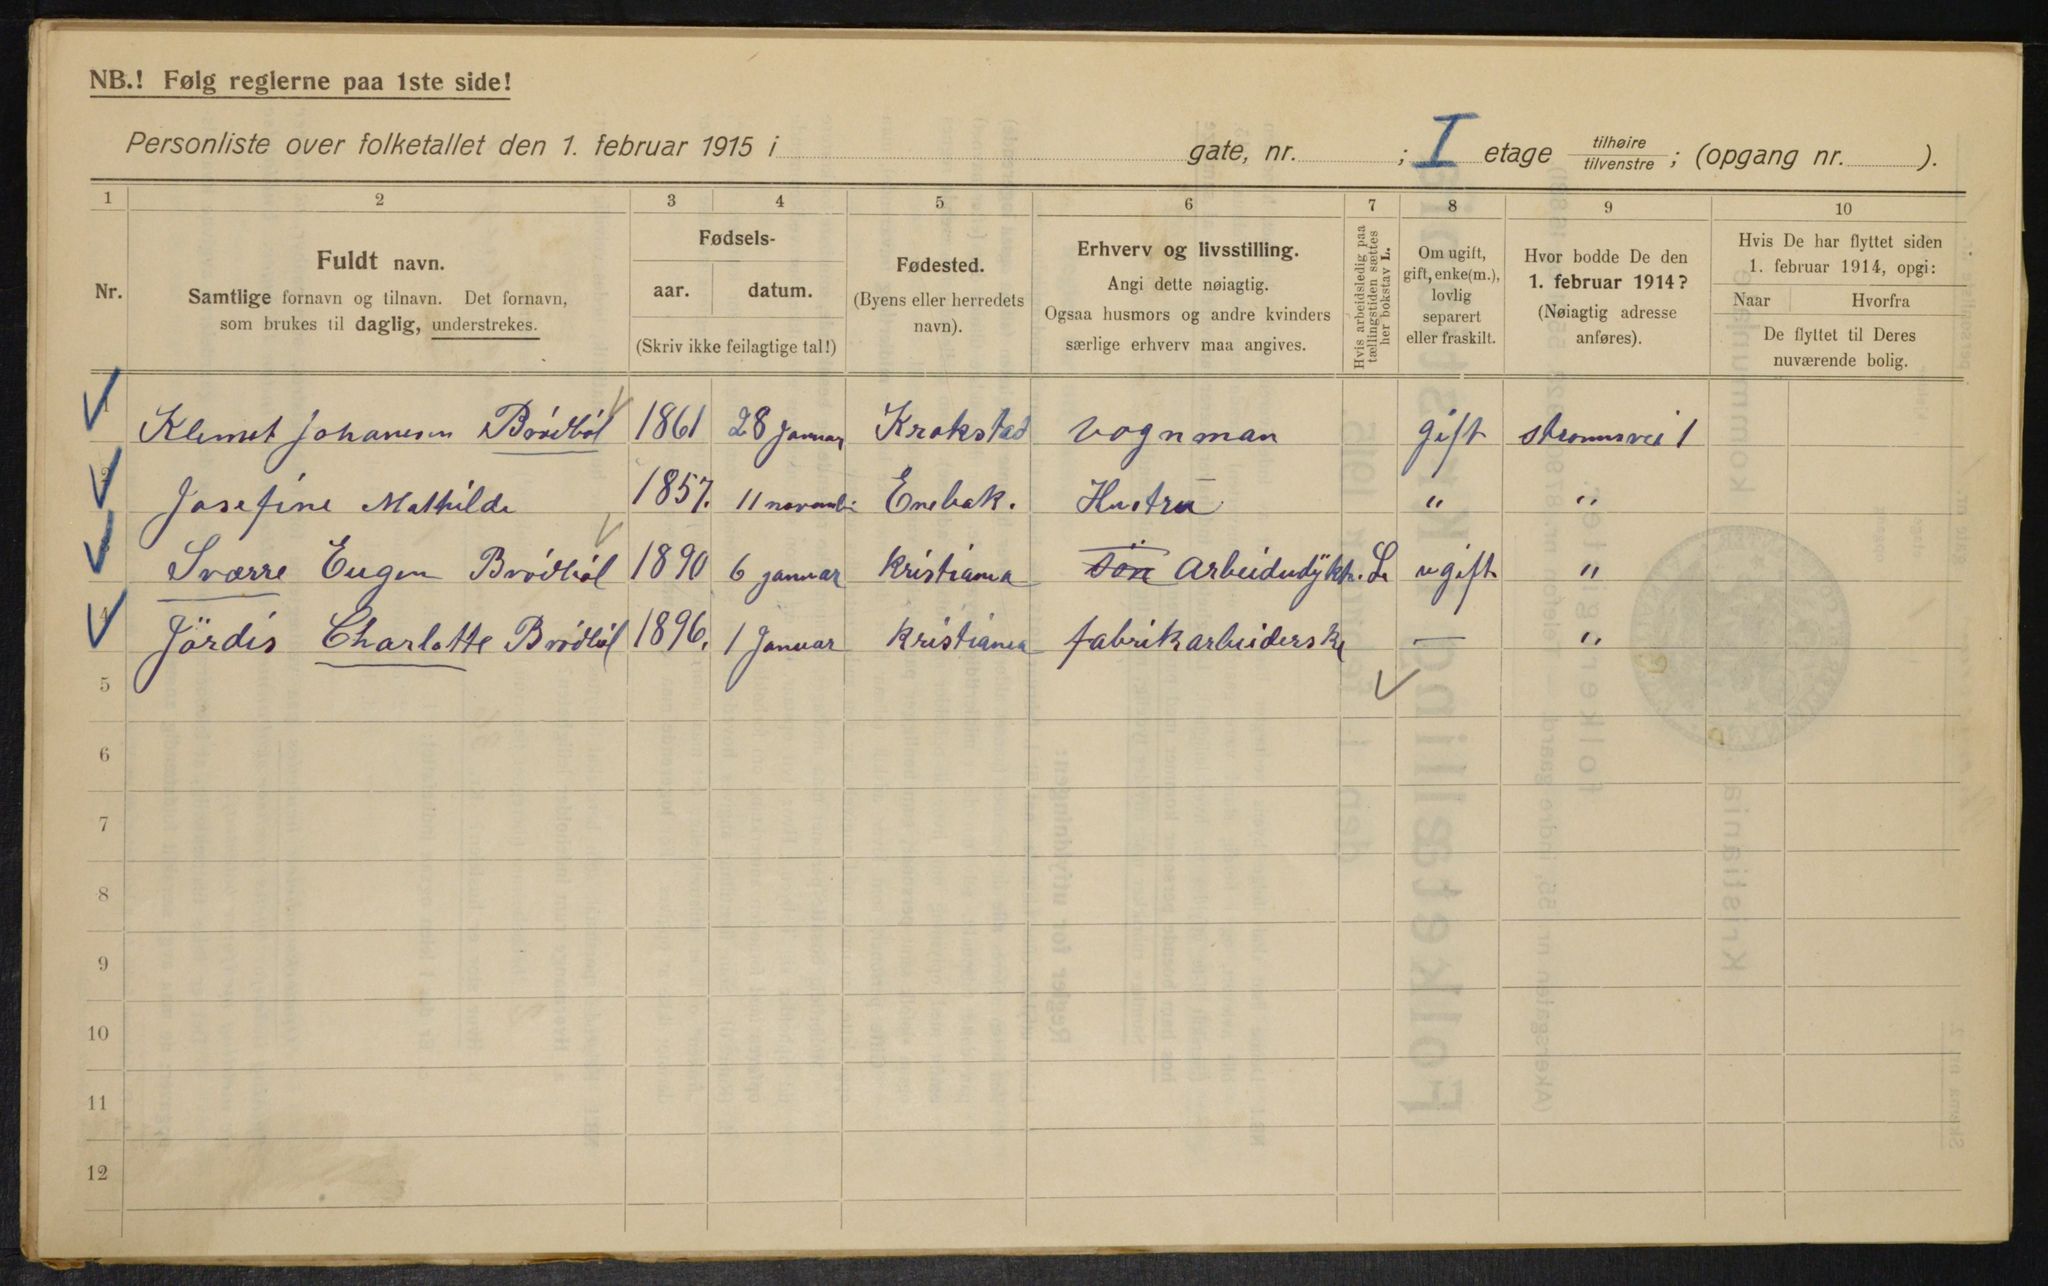 NB.! Følg reglerne paa 1ste side!
Personliste over folketallet den 1. februar 1915 i gate, nr. ; I etage tilhøire tilvenstre ; (opgang nr. ).
1 2 3 4 5 6 7 8 9 10
Nr.
Fuldt navn.
Samtlige fornavn og tilnavn. Det fornavn,
som brukes til daglig, understrekes.
Fødsels-
aar. datum.
(Skriv ikke feilagtige tal!)
Fødested.
(Byens eller herredets
navn).
Erhverv og livsstilling.
Angi dette nøiagtig.
Ogsaa husmors og andre kvinders
særlige erhverv maa angives.
Hvis arbeidsledig paa
tællingstiden sættes
her bokstav L.
Om ugift,
gift, enke(m.),
lovlig
separert
eller fraskilt.
Hvor bodde De den
1. februar 1914?
(Nøiagtig adresse
anføres).
Hvis De har flyttet siden
1. februar 1914, opgi:
Naar Hvorfra
De flyttet til Deres
nuværende bolig.
1 Klemet Johanesen Brödböl 1861 28 Januar Krokstad vognman gift strömsvei 1
2 Josefine Mathilde 1857. 11 novembr Enebak. Hustru " "
3 Sværre Eugen Brödböl 1890 6 januar Kristiania sön L ugift "
4 Jördis Charlotte Brödböl 1896. 1 Januar Kristiania fabrikarbeiderske — "
5
6
7
8
9
10
11
12